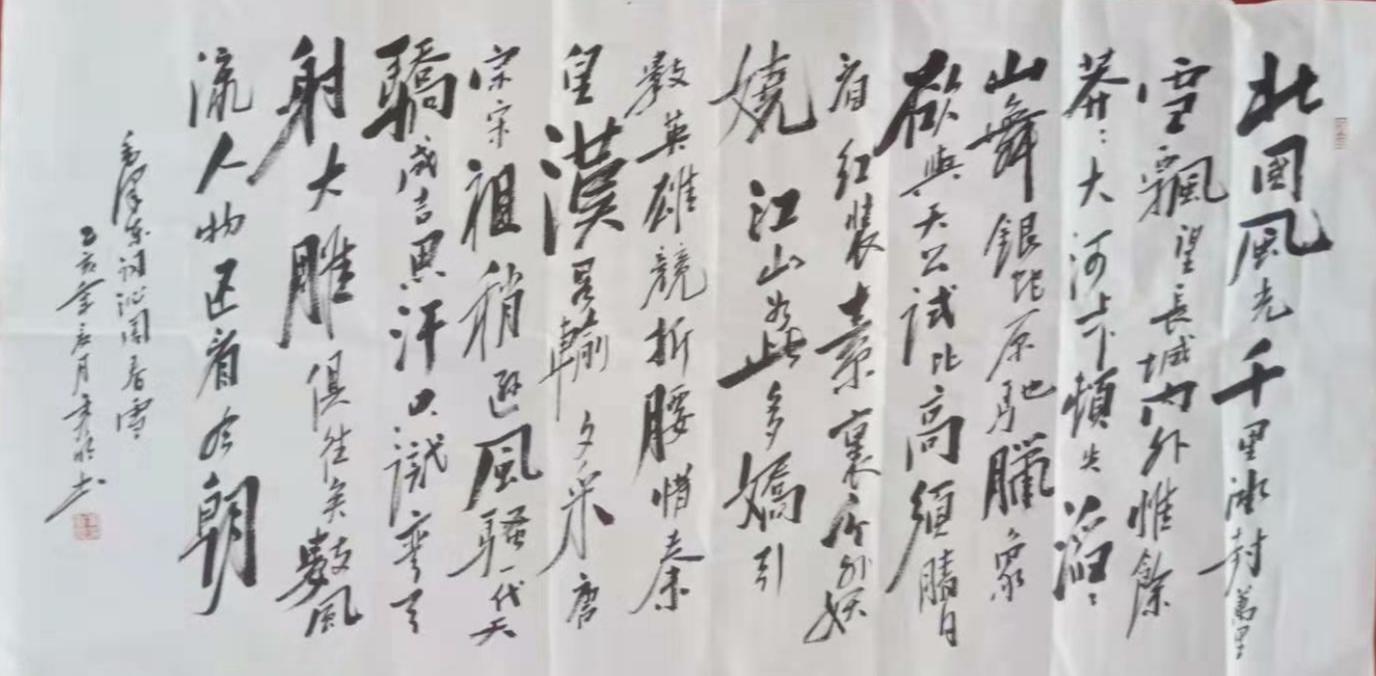 北國風光千里冰封萬里
雪飄望長城內外惟餘
莽〻大河上下頓失滔〻
山舞銀蛇原馳臘象
欲與天公試比高須晴日
看紅裝素裹分外妖
嬈江山如此多嬌引
數英雄競折腰惜秦
皇漢畧輸文采唐
宗宋祖稍遜風騷一代天
驕成吉思汗只識彎弓
射大雕俱往矣數風
流人物还看今朝
毛澤東詞沁園春雪
己亥年月書